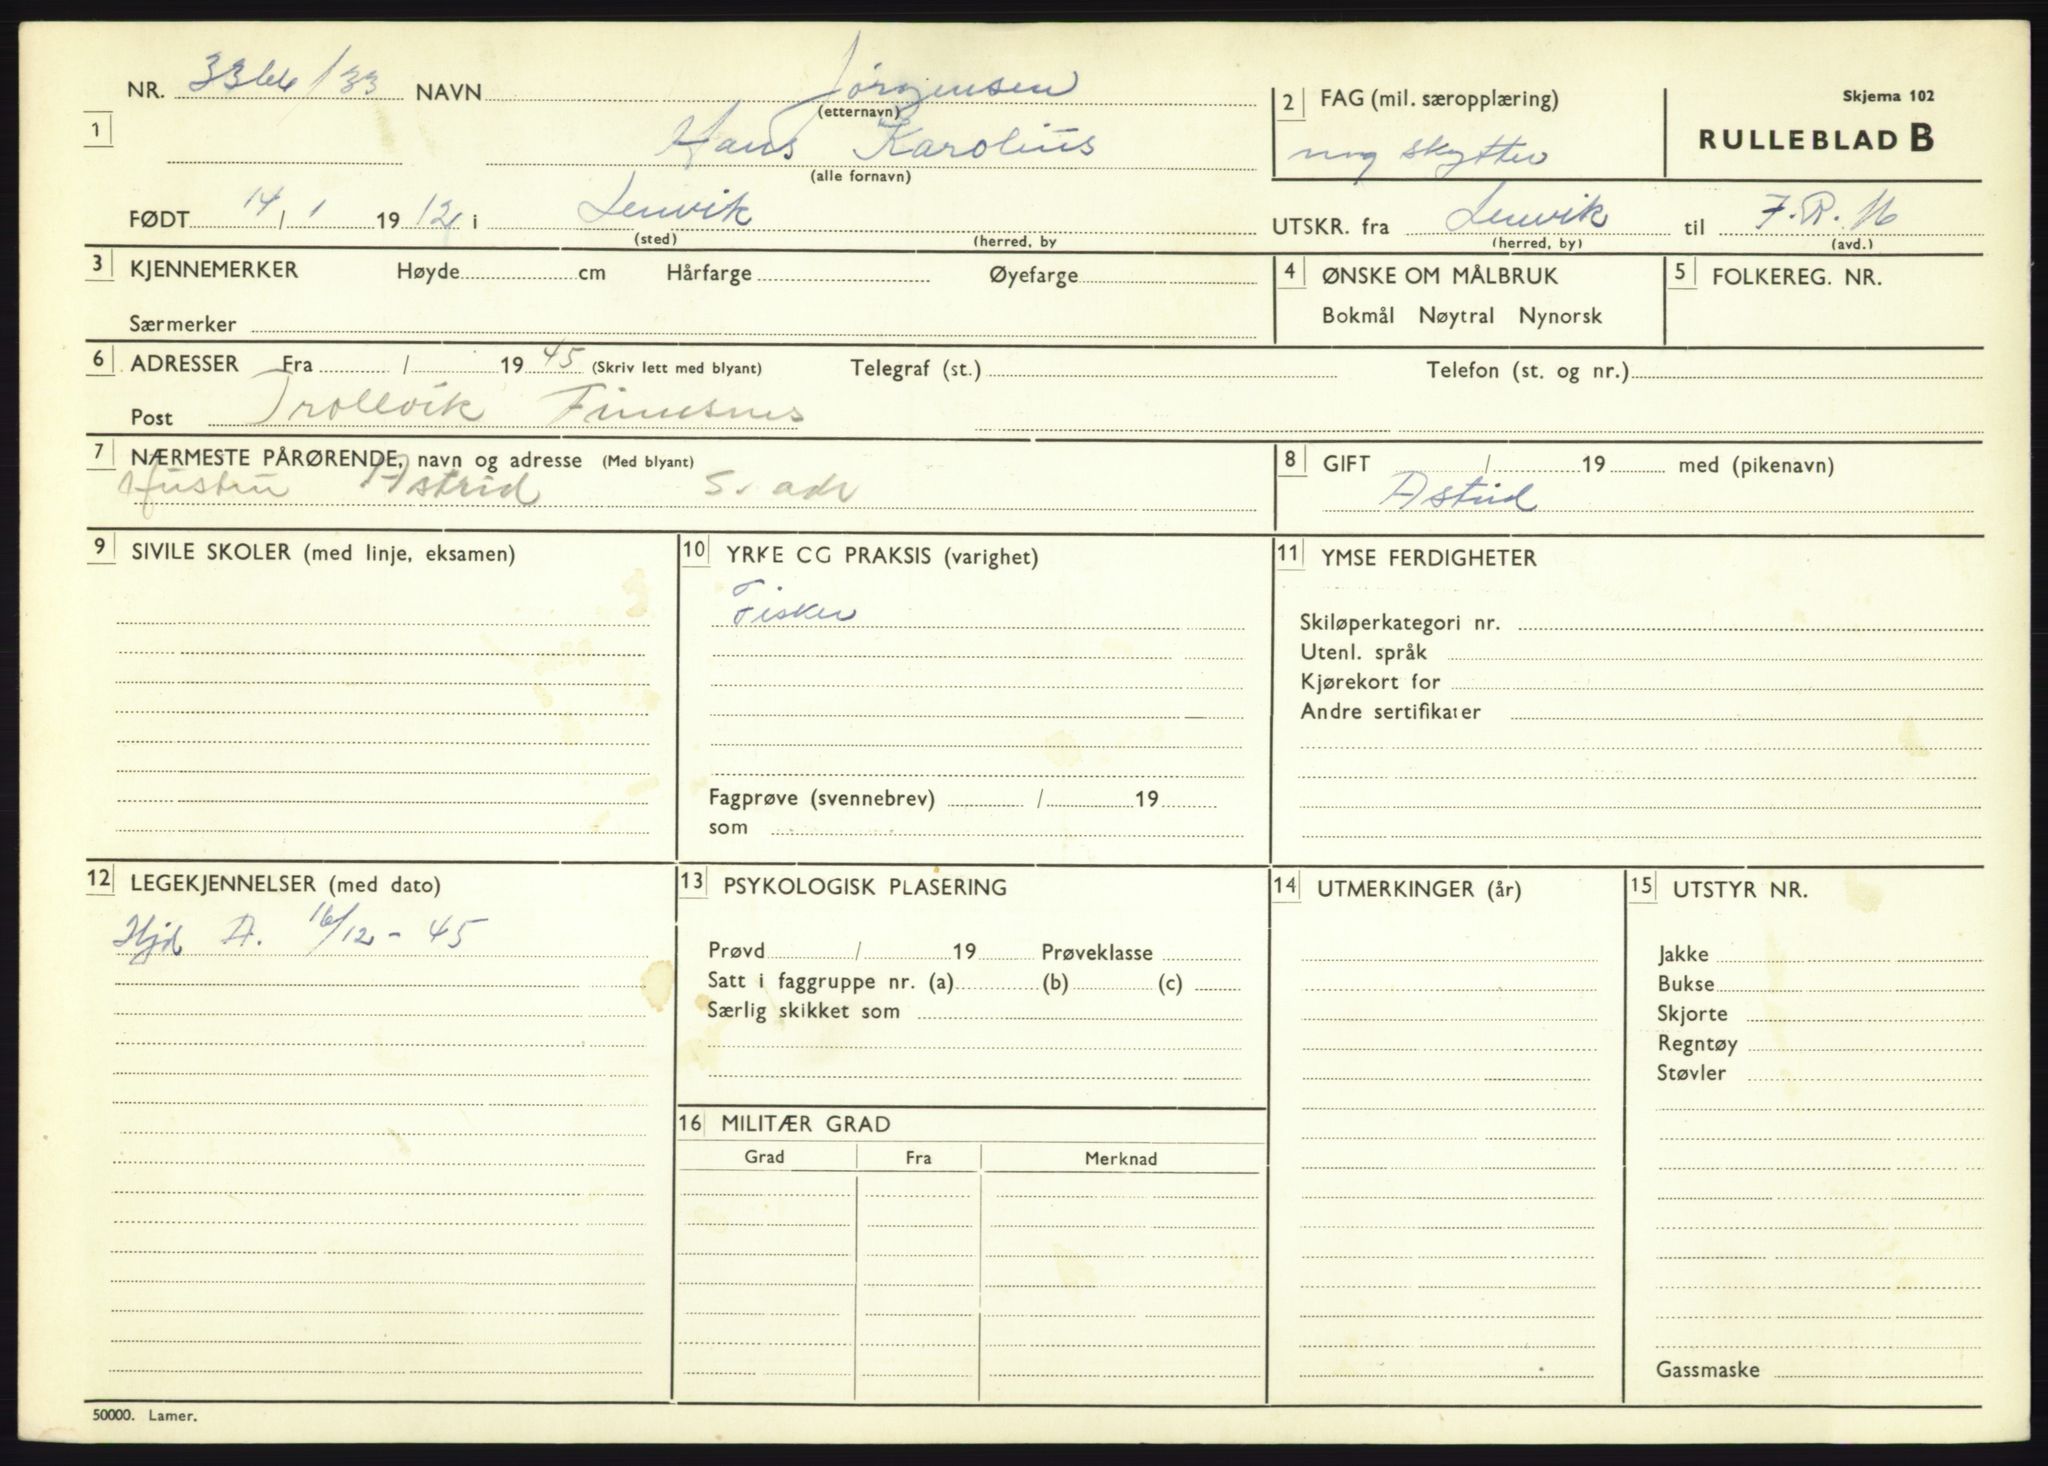 NR. 3366/33 NAVN Jörgensen
(etternavn)
Skjema 102
1
Hans Karolius
(alle fornavn)
2 FAG (mil. særopplæring)
mg skytter
RULLEBLAD B
FØDT 14/1 1912 i Lenvik
(sted) (herred, by
UTSKR. fra Lenvik til F.R. 16
(herred, by) (avd.)
3 KJENNEMERKER Høyde cm Hårfarge Øyefarge
Særmerker
4 ØNSKE OM MÅLBRUK
Bokmål Nøytral Nynorsk
5 FOLKEREG. NR.
6 ADRESSER Fra / 1945 (Skriv lett med blyant) Telegraf (st.) Telefon (st. og nr.)
Post Trollvik Finnsnes
7 NÆRMESTE PÅRØRENDE, navn og adresse (Med blyant)
Hustru Astrid s. adr
8 GIFT / 19 med (pikenavn)
Astrid
9 SIVILE SKOLER (med linje, eksamen)
10 YRKE CG PRAKSIS (varighet)
Fisker
Fagprøve (svennebrev) / 19
som
11 YMSE FERDIGHETER
Skiløperkategori nr.
Utenl. språk
Kjørekort for
Andre sertifikater
12 LEGEKJENNELSER (med dato)
Hjd A. 16/12-45
13 PSYKOLOGISK PLASERING
Prøvd / 19 Prøveklasse
Satt i faggruppe nr. (a) (b) (c)
Særlig skikket som
14 UTMERKINGER (år)
15 UTSTYR NR.
Jakke
Bukse
Skjorte
Regntøy
Støvler
Gassmaske
16 MILITÆR GRAD
Grad Fra Merknad
50000. Lamer.